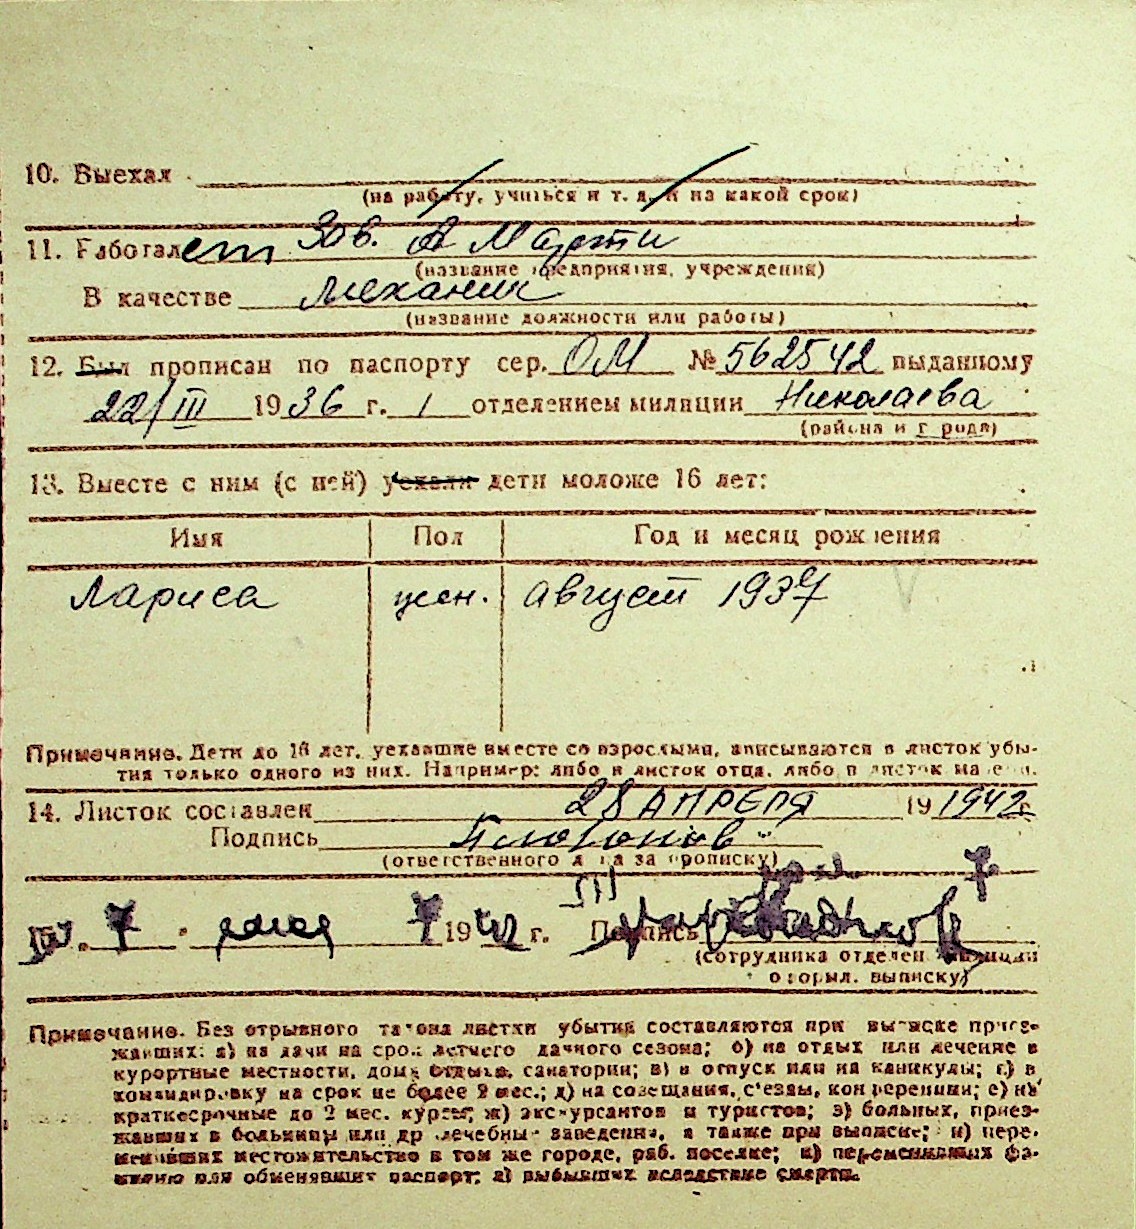 10. Выехал
(на работу, учиться и т. д. и на какой срок)
11. Работает Зав. А Марти
(название предприятия, учреждения)
В качестве механик
(название должности или работы)
12. Был прописан по паспорту сер. ОМ № 562542 выданному
22/III 1936 г. 1 отделением милиции Николаева
(района и города)
13. Вместе с ним (с ней) уехали дети моложе 16 лет:
Имя Пол Год и месяц рождения
Лариса жен. август 1937
Примечание. Дети до 16 лет, уехавшие вместе со взрослыми, вписываются в листок убы-
тия только одного из них. Например: либо в листок отца, либо в листок матери.
14. Листок составлен 28 АПРЕЛЯ 19 1942 г.
Подпись
(ответственного лица за прописку)
7 мая 1942 г. Подпись
(сотрудника отделен. милиции
оторыл. выписку)
Примечание. Без отрывного талона листки убытия составляются при выписке приез-
жавших: а) на дачи на срок летнего дачного сезона; б) на отдых или лечение в
курортные местности, дома отдыха, санатории; в) в отпуск или на каникулы; г) в
командировку на срок не более 2 мес.; д) на совещания, с'езды, конференции; е) на
краткосрочные до 2 мес. курсы; ж) экскурсантов и туристов; з) больных, приез-
жавших в больницы или др. лечебные заведения, а также при выписке; и) пере-
менивших местожительство в том же городе, раб. поселке; к) переменивших фа-
милию или обменявших паспорт; л) выбывших вследствие смерти.